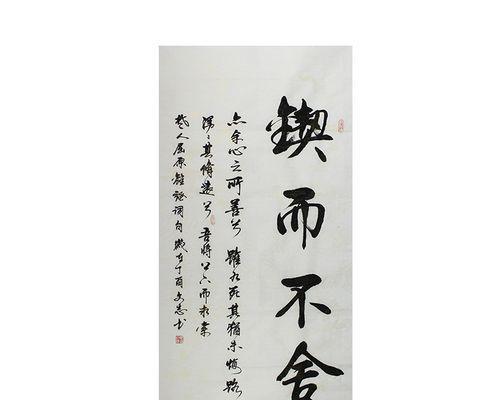 锲而不舍
亦余心之所善兮 虽九死其犹未悔 路
漫々其修远兮 吾将上下而求索
楚人屈原离骚词句 岁在丁酉文志书